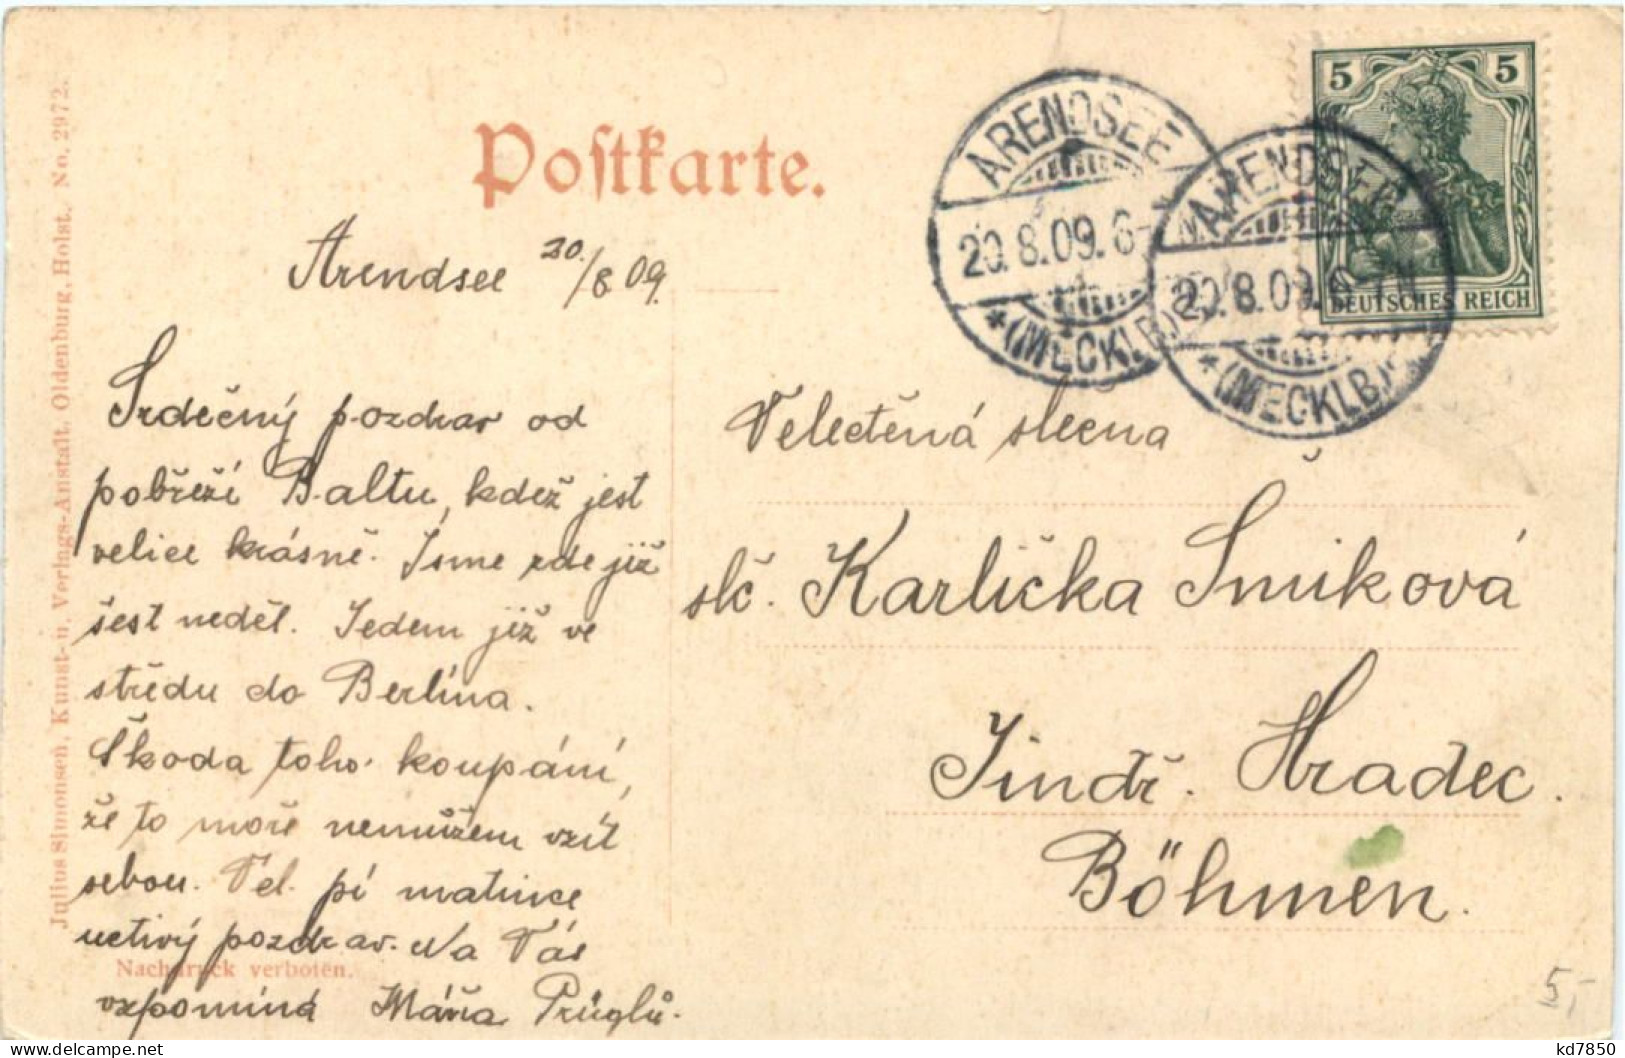 Postkarte.
ARENDSEE
20.8.09.6-
*(MECKLB)
ARENDSEE
20.8.09.6-7N
*(MECKLB)
5 5
DEUTSCHES REICH
Arendsee 20./8 09.
Srdečný pozdrav od
pobřeží Baltu, kdež jest
velice krásně. Jsme zde již
šest neděl. Jedem již ve
středu do Berlína.
Škoda toho koupání,
že to moře nemůžem vzít
sebou. Vel. pí matince
uctivý pozdrav. Na Vás
vzpomíná Máňa
Veletěná slečna
slč. Karlička Šmiková
Jindř. Hradec.
Böhmen.
Julius Simonsen, Kunst- u. Verlags-Anstalt, Oldenburg, Holst. No. 2972.
Nachdruck verboten.
5,-
kd7850